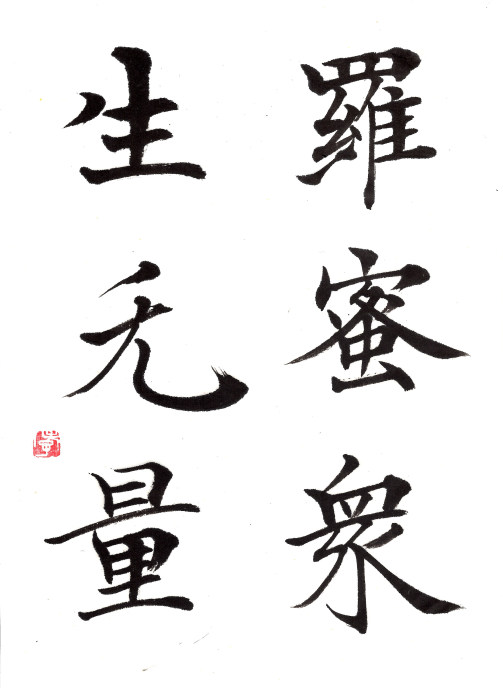 羅蜜衆
生无量